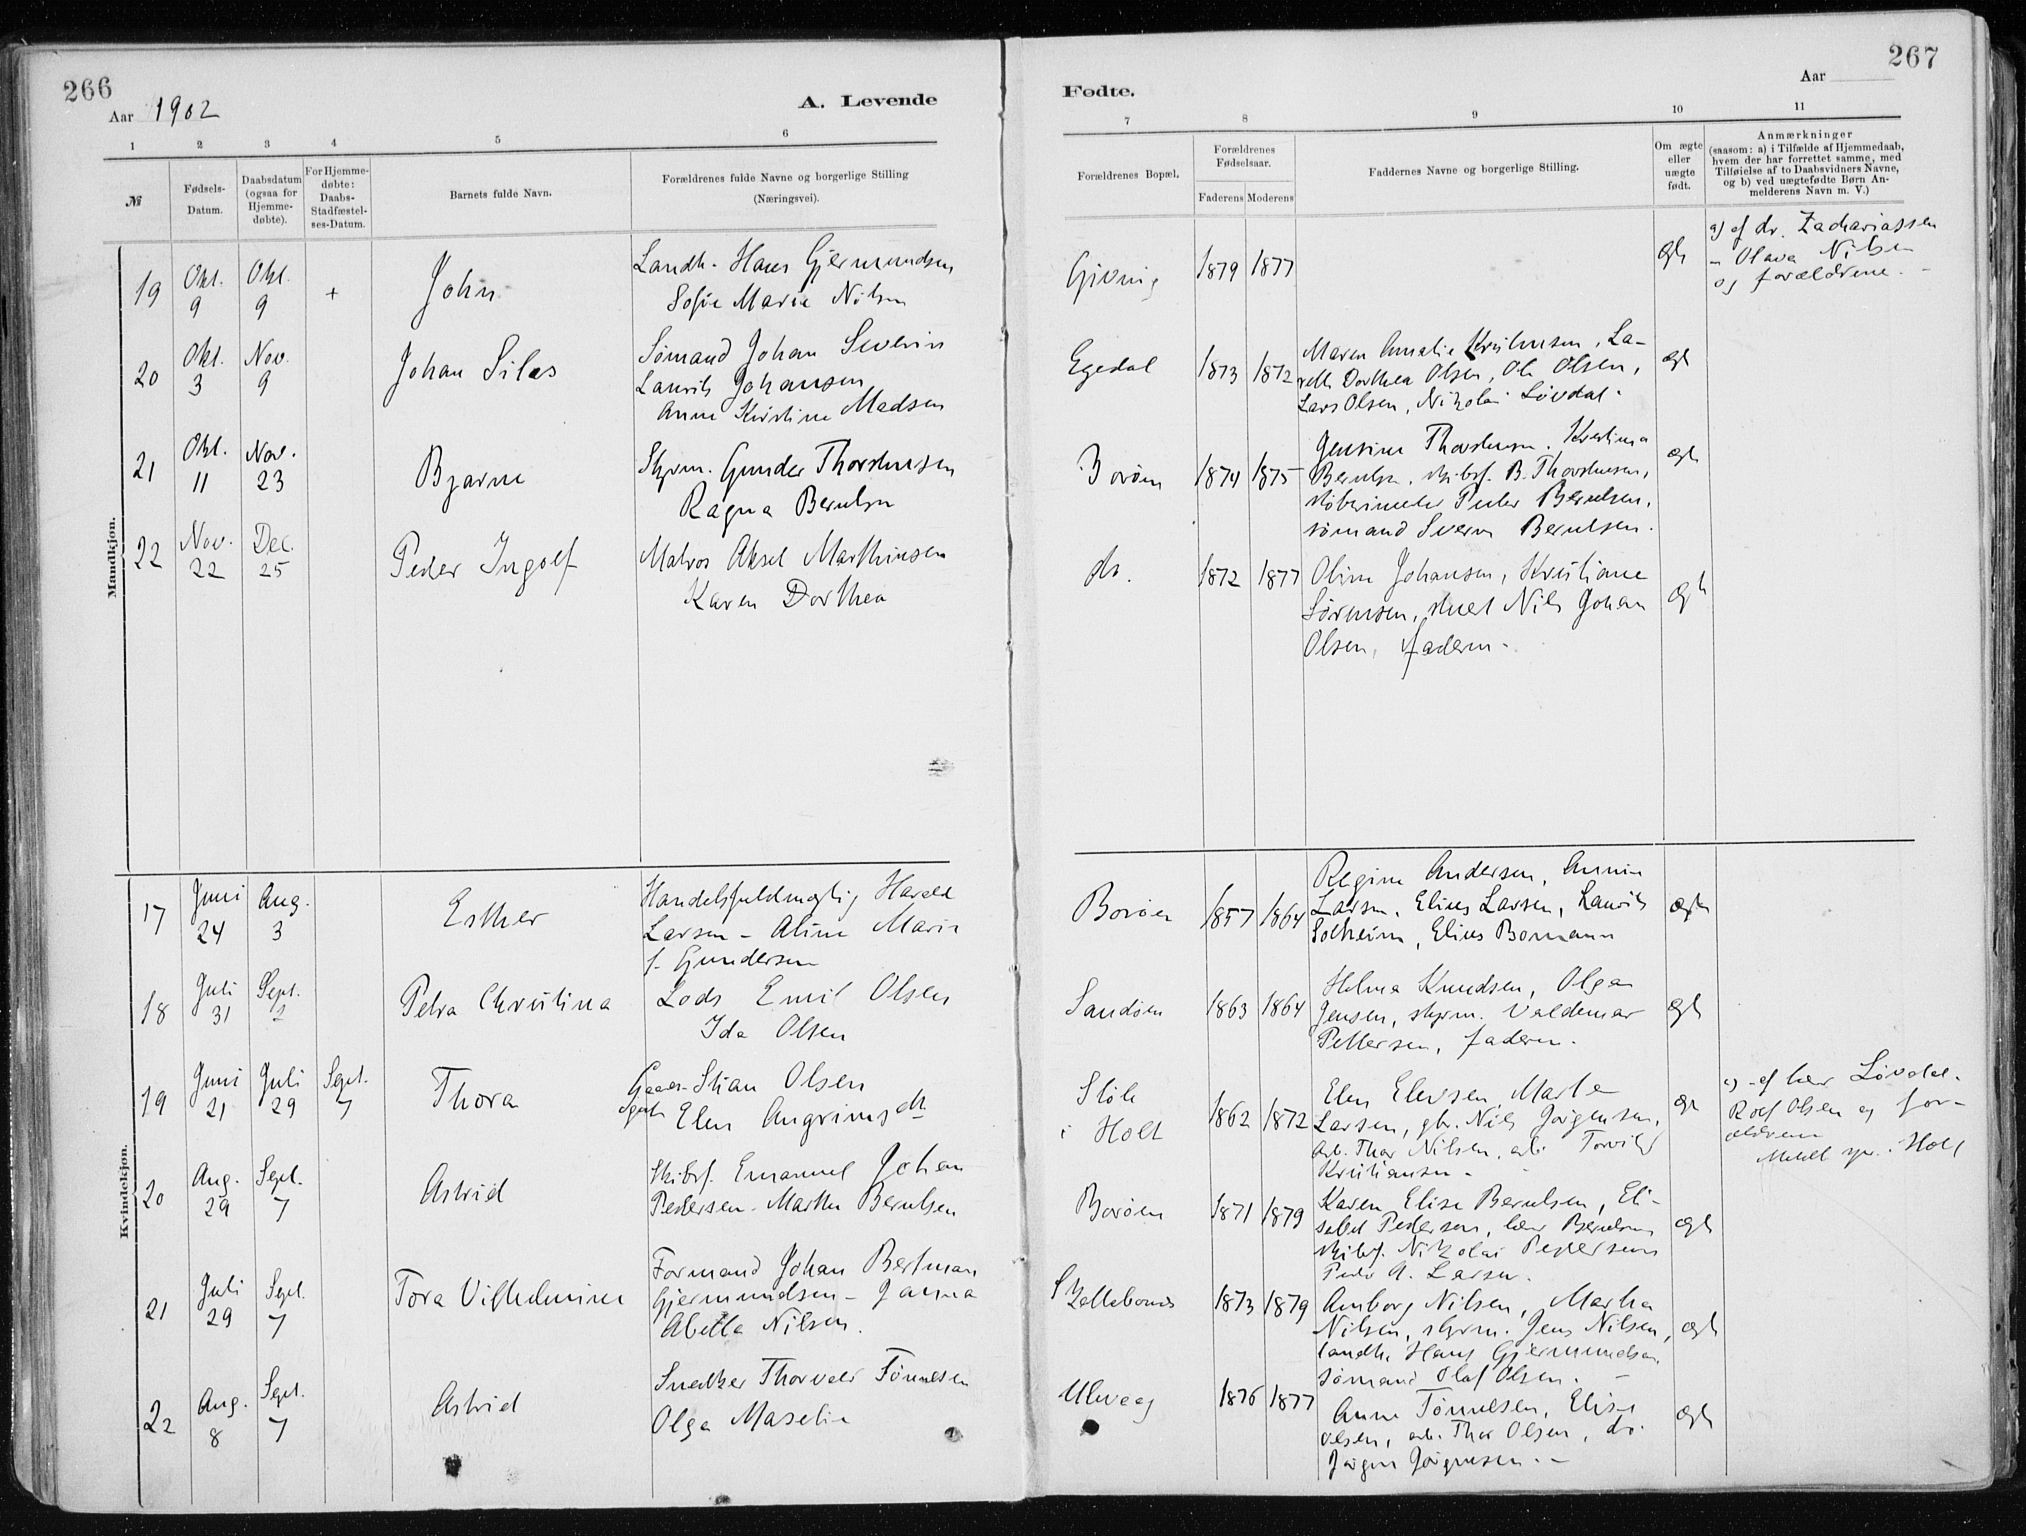 266
Aar 1902
A. Levende
1 2 3 4 5 6
№
Fødsels-
Datum.
Daabsdatum
(ogsaa for
Hjemme-
døbte).
For Hjemme-
døbte:
Daabs-
Stadfæstel-
ses-Datum.
Barnets fulde Navn.
Forældrenes fulde Navne og borgerlige Stilling
(Næringsvei).
Mandkjøn.
19 Okt. 9 Okt. 9 + John
Landh. Hans Gjermundsen
Sofie Marie Nilsen
20 Okt. 3 Nov. 9 Johan Silas
Sømand Johan Severin
Laurits Johansen
Anne Kirstine Madsen
21 Okt. 11 Nov. 23 Bjarne
Styrm. Gunder Thorstensen
Ragna Berntsen
22 Nov. 22 Dec. 25 Peder Ingolf
Matros Aksel Marthinsen
Karen Dorthea
Kvindekjøn.
17 Juni 24 Aug. 3 Esther
Handelsfuldmægtig Harald
Larsen - Aline Marie
f. Gundersen
18 Juli 31 Sept. Petra Christina
Lods Emil Olsen
Ida Olsen
19 Juni 21 Juli 29 Sept. 7 Thora
Stian Olsen
Elen Angrimsdt
20 Aug. 29 Sept. 7 Astrid
Skibsf. Emanuel Johan
Pedersen - Marthe Berntsen
21 Juli 29 Sept. 7 Tora Vilhelmine
Formand Johan Bertman
Gjermundsen - Janna
Abella Nilsen.
22 Aug. 8 Sept. 7 Astrid
Snedker Thorvald Tønnesen
Olga Maselie
267
Aar
Fødte.
7 8 9 10 11
Forældrenes Bopæl.
Forældrenes
Fødselsaar.
Faderens Moderens
Faddernes Navne og borgerlige Stilling.
Om ægte
eller
uægte
født.
Anmærkninger
(saasom: a) i Tilfælde af Hjemmedaab,
hvem der har forrettet samme, med
Tilføielse af to Daabsvidners Navne,
og b) ved uægtefødte Børn An-
melderens Navn m. V.)
Givning 1879 1877 ægte
a) af dr. Zachariassen
- Olava Nilsen
og forældrene. -
Egedal 1873 1872
Maren Amalie Kristensen, La-
Dorthea Olsen, Ole Olsen,
Lars Olsen, Nikolai Løvdal.
ægte
Borøen 1874 1875
Jensine Thorstensen, Kristina
Berntsen, skibsf. B. Thorstensen,
Peder Berntsen,
sømand Svern Berntsen.
ægte
do. 1872 1877
Oline Johansen, Kristiane
Sørensen, Nils Johan
Olsen, faderen.
ægte
Borøen 1857 1864
Regine Andersen, Annie
Larsen, Elius Larsen, Laurits
Solheim, Elius Bomann
ægte
Sandøen 1863 1864
Helma Knudsen, Olga
Jensen, styrm. Valdemar
Pettersen, faderen.
ægte
Støle
i Holt 1862 1872
Elen Elevsen, Marte
Larsen, gbr. Nils Jørgensen,
arb. Thor Nilsen, arb. Torvild
Kristiansen -
ægte
a) af lær. Løvdal.
Rolf Olsen og for-
ældrene
Meldt spr. i Holt
Borøen 1871 1879
Karen Elise Berntsen, Eli-
sabet Pedersen, lær. Berntsen
skibsf. Nikolai Pedersen
Peder A. Larsen.
ægte
1873 1879
Amborg Nilsen, Martha
Nilsen, styrm. Jens Nilsen,
landh. Hans Gjermundsen
sømand Olaf Olsen. -
ægte
Ulevaag 1876 1877
Anne Tønnesen, Elise
Olsen, arb. Thor Olsen, do.
Jørgen Jørgensen. -
ægte